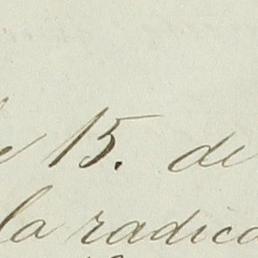 15. de
la radica